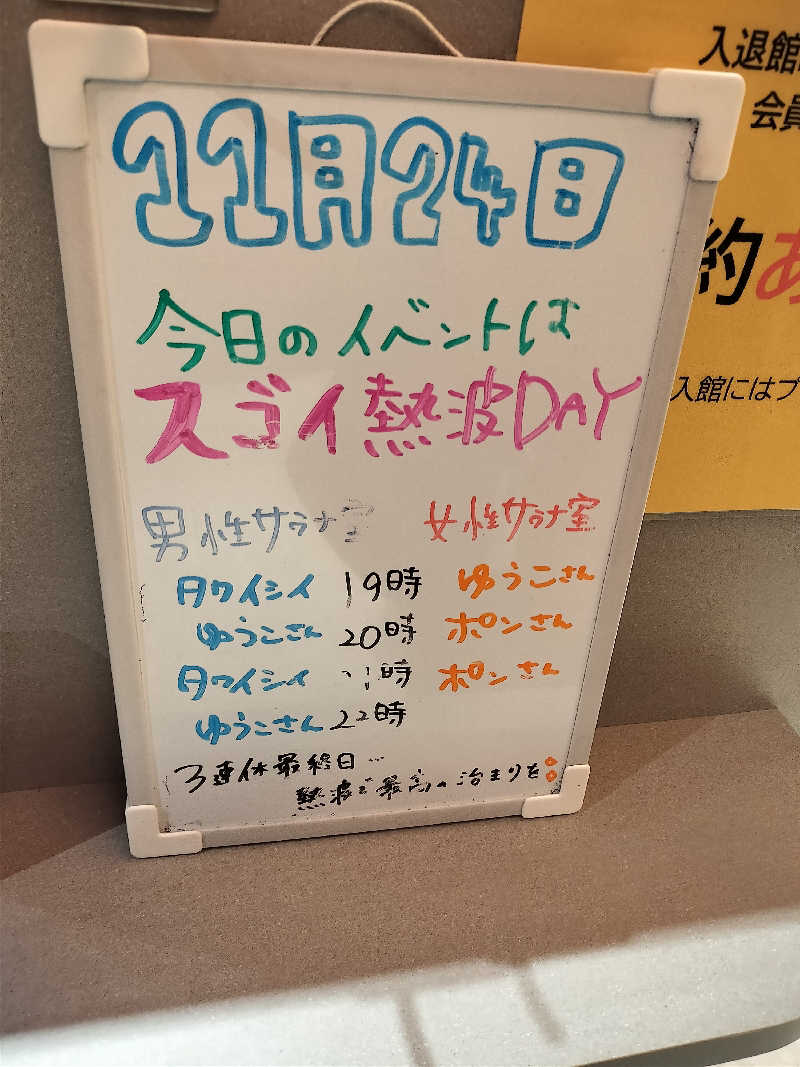 11月24日
今日のイベントは
スゴイ熱波DAY
男性サウナ室 女性サウナ室
タワイシイ 19時 ゆうこさん
ゆうこさん 20時 ポンさん
タワイシイ 21時 ポンさん
ゆうこさん 22時
3連休最終日…
熱波で最高の治まりを
入退館
会員
約あ
入館にはプ